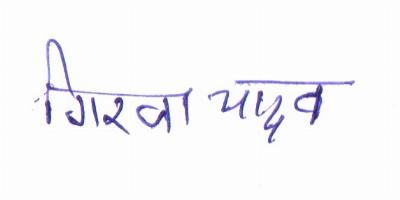 गिरजा यादव